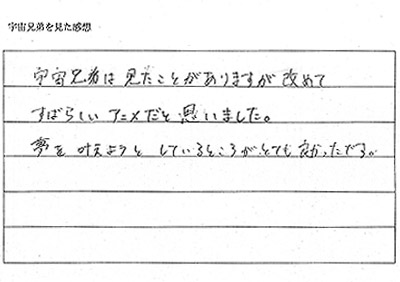 宇宙兄弟を見た感想
宇宙兄弟は見たことがありますが改めて
すばらしいアニメだと思いました。
夢を叶えようとしているところがとても良かったです。